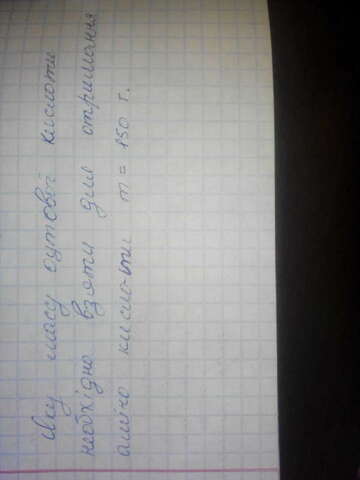 яку масу оцтової кислоти
необхідно взяти для отримання
аміно кислоти m = 150 г.